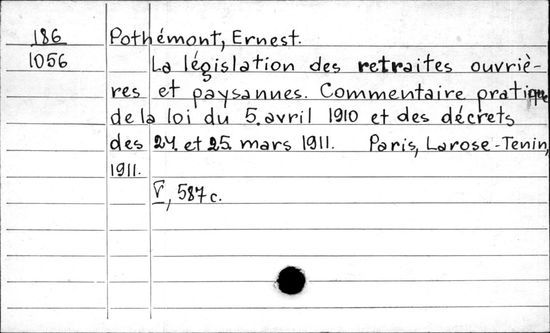 186 Pothémont, Ernest.
1056 La législation des retraites ouvriè-
res et paysannes. Commentaire pratique
de la loi du 5. avril 1910 et des décrets
des 24. et 25. mars 1911. Paris, Larose-Tenin,
1911.
V, 587 c.